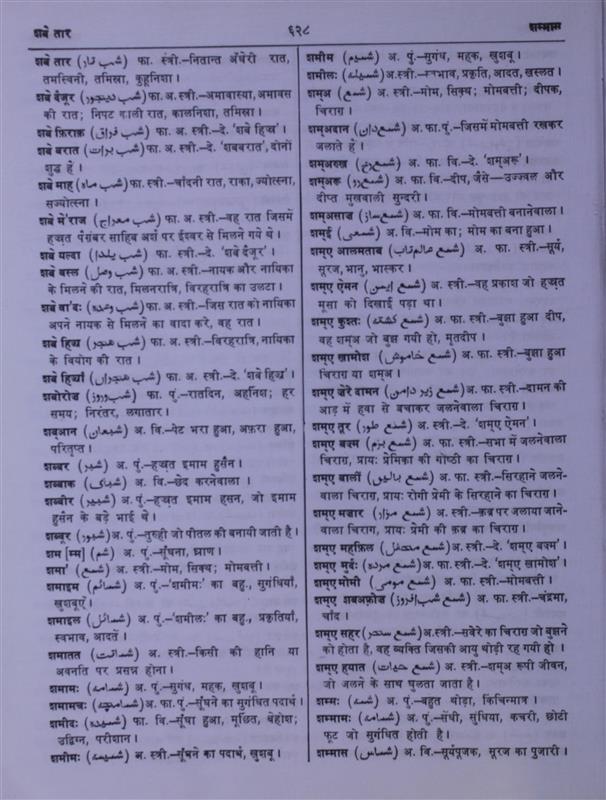 शबे तार
६२८
शम्मास
शबे तार (شب تار) फा. स्त्री.–नितान्त अँधेरी रात,
तमस्विनी, तमिस्रा, कुहूनिशा।
शबे दैजूर (شب دیجور) फा. अ. स्त्री.–अमावास्या, अमावस
की रात; निपट काली रात, कालनिशा, तमिस्रा।
शबे फ़िराक़ (شب فراق) फा. अ. स्त्री.–दे. 'शबे हिज्र'।
शबे बरात (شب برات) फा. अ. स्त्री.–दे. 'शबबरात', दोनों
शुद्ध हैं।
शबे माह (شب ماہ) फा. स्त्री.–चाँदनी रात, राका, ज्योत्स्ना,
सज्योत्स्ना।
शबे मे'राज (شب معراج) फा. अ. स्त्री.–वह रात जिसमें
हज़्रत पैग़ंबर साहिब अर्श पर ईश्वर से मिलने गये थे।
शबे यल्दा (شب یلدا) फा. अ. स्त्री.–दे. 'शबे दैजूर'।
शबे वस्ल (شب وصل) फा. अ. स्त्री.–नायक और नायिका
के मिलने की रात, मिलनरात्रि, विरहरात्रि का उलटा।
शबे वा'दः (شب وعدہ) फा. अ. स्त्री.–जिस रात को नायिका
अपने नायक से मिलने का वादा करे, वह रात।
शबे हिज्र (شب ہجر) फा. अ. स्त्री.–विरहरात्रि, नायिका
के वियोग की रात।
शबे हिज्राँ (شب ہجراں) फा. अ. स्त्री.–दे. 'शबे हिज्र'।
शबोरोज़ (شب وروز) फा. पुं.–रातदिन, अहर्निश; हर
समय; निरंतर, लगातार।
शब्आन (شبعان) अ. वि.–पेट भरा हुआ, अफ़रा हुआ,
परितृप्त।
शब्बर (شبر) अ. पुं.–हज़्रत इमाम हुसैन।
शब्बाक (شباک) अ. वि.–छेद करनेवाला।
शब्बीर (شبیر) अ. पुं.–हज़्रत इमाम हसन, जो इमाम
हुसैन के बड़े भाई थे।
शब्बूर (شبور) अ. पुं.–तुरुही जो पीतल की बनायी जाती है।
शम [म्म] (شم) अ. पुं.–सूँघना, घ्राण।
शमा' (شمع) अ. स्त्री.–मोम, सिक्थ; मोमबत्ती।
शमाइम (شمائم) अ. पुं.–'शमीमः' का बहु., सुगंधियाँ,
ख़ुशबुएँ।
शमाइल (شمائل) अ. पुं.–'शमीलः' का बहु., प्रकृतियाँ,
स्वभाव, आदतें।
शमातत (شماتت) अ. स्त्री.–किसी की हानि या
अवनति पर प्रसन्न होना।
शमामः (شمامہ) अ. पुं.–सुगंध, महक, ख़ुशबू।
शमामचः (شمامچہ) अ. फा. पुं.–सूँघने का सुगंधित पदार्थ।
शमीदः (شمیدہ) फा. वि.–सूँघा हुआ, मूर्छित, बेहोश;
उद्विग्न, परीशान।
शमीमः (شمیمہ) अ. स्त्री.–सूँघने का पदार्थ, ख़ुशबू।
शमीम (شمیم) अ. पुं.–सुगंध, महक, ख़ुशबू।
शमीलः (شمیلہ) अ. स्त्री.–स्वभाव, प्रकृति, आदत, ख़स्लत।
शम्अ (شمع) अ. स्त्री.–मोम, सिक्थ; मोमबत्ती; दीपक,
चिराग़।
शम्अदान (شمعدان) अ. फा. पुं.–जिसमें मोमबत्ती रखकर
जलाते हैं।
शम्अरुख़ (شمع رخ) अ. फा. वि.–दे. 'शम्अरू'।
शम्अरू (شمع رو) अ. फा. वि.–दीप, जैसे–उज्ज्वल और
दीप्त मुखवाली सुन्दरी।
शम्असाज़ (شمع ساز) अ. फा. वि.–मोमबत्ती बनानेवाला।
शम्ई (شمعی) अ. वि.–मोम का; मोम का बना हुआ।
शम्ए आलमताब (شمع عالم تاب) अ. फा. स्त्री.–सूर्य,
सूरज, भानु, भास्कर।
शम्ए ऐमन (شمع ایمن) अ. स्त्री.–वह प्रकाश जो हज़्रत
मूसा को दिखाई पड़ा था।
शम्ए कुश्तः (شمع کشتہ) अ. फा. स्त्री.–बुझा हुआ दीप,
वह शम्अ जो बुझ गयी हो, मृतदीप।
शम्ए ख़ामोश (شمع خاموش) अ. फा. स्त्री.–बुझा हुआ
चिराग़ या शम्अ।
शम्ए ज़ेरे दामन (شمع زیر دامن) अ. फा. स्त्री.–दामन की
आड़ में हवा से बचाकर जलनेवाला चिराग़।
शम्ए तूर (شمع طور) अ. स्त्री.–दे. 'शम्ए ऐमन'।
शम्ए बज़्म (شمع بزم) अ. फा. स्त्री.–सभा में जलनेवाला
चिराग़, प्रायः प्रेमिका की गोष्ठी का चिराग़।
शम्ए बालीं (شمع بالیں) अ. फा. स्त्री.–सिरहाने जलने-
वाला चिराग़, प्रायः रोगी प्रेमी के सिरहाने का चिराग़।
शम्ए मज़ार (شمع مزار) अ. स्त्री.–क़ब्र पर जलाया जाने-
वाला चिराग़, प्रायः प्रेमी की क़ब्र का चिराग़।
शम्ए महफ़िल (شمع محفل) अ. स्त्री.–दे. 'शम्ए बज़्म'।
शम्ए मुर्दः (شمع مردہ) अ. फा. स्त्री.–दे. 'शम्ए ख़ामोश'।
शम्ए मोमी (شمع مومی) अ. फा. स्त्री.–मोमबत्ती।
शम्ए शबअफ़्रोज़ (شمع شب افروز) अ. फा. स्त्री.–चंद्रमा,
चाँद।
शम्ए सहर (شمع سحر) अ. स्त्री.–सवेरे का चिराग़ जो बुझने
को होता है, वह व्यक्ति जिसकी आयु थोड़ी रह गयी हो।
शम्ए हयात (شمع حیات) अ. स्त्री.–शम्अ रूपी जीवन,
जो जलने के साथ घुलता जाता है।
शम्मः (شمہ) अ. पुं.–बहुत थोड़ा, किंचिन्मात्र।
शम्मामः (شمامہ) अ. पुं.–सेंधी, सुंधिया, कचरी, छोटी
फूट जो सुगंधित होती है।
शम्मास (شماس) अ. वि.–सूर्यपूजक, सूरज का पुजारी।